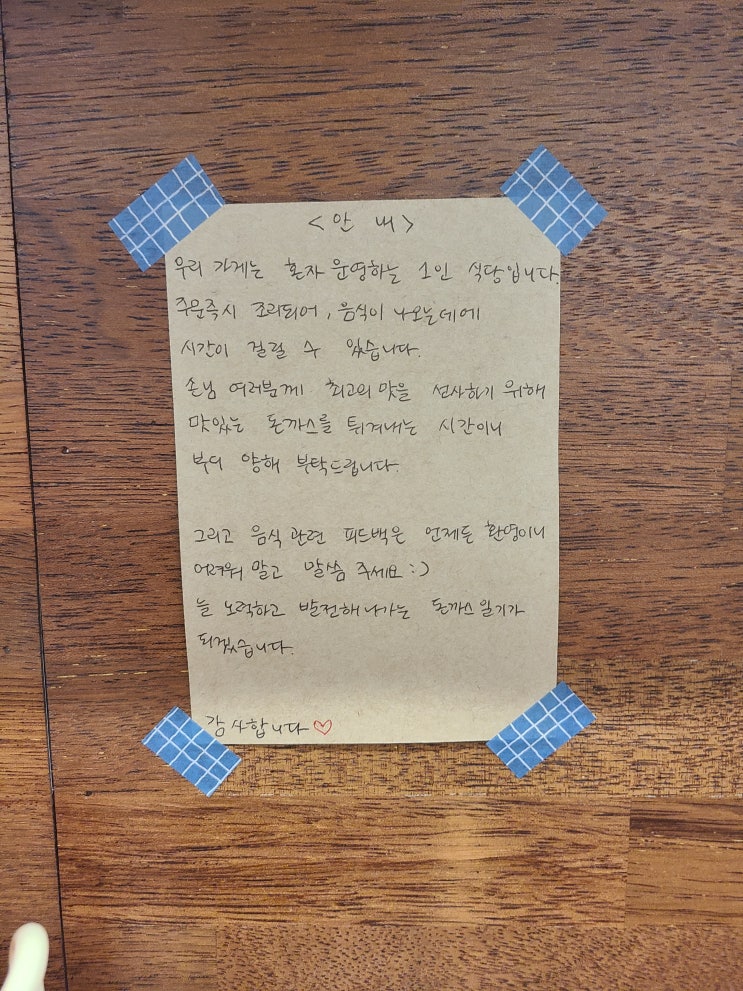 <안 내>
우리 가게는 혼자 운영하는 1인 식당입니다.
주문즉시 조리되어, 음식이 나오는데에
시간이 걸릴 수 있습니다.
손님 여러분께 최고의 맛을 선사하기 위해
맛있는 돈까스를 튀겨내는 시간이니
부디 양해 부탁드립니다.
그리고 음식 관련 피드백은 언제든 환영이니
어려워 말고 말씀 주세요 :)
늘 노력하고 발전해 나가는 돈까스 일기가
되겠습니다.
감사합니다♡